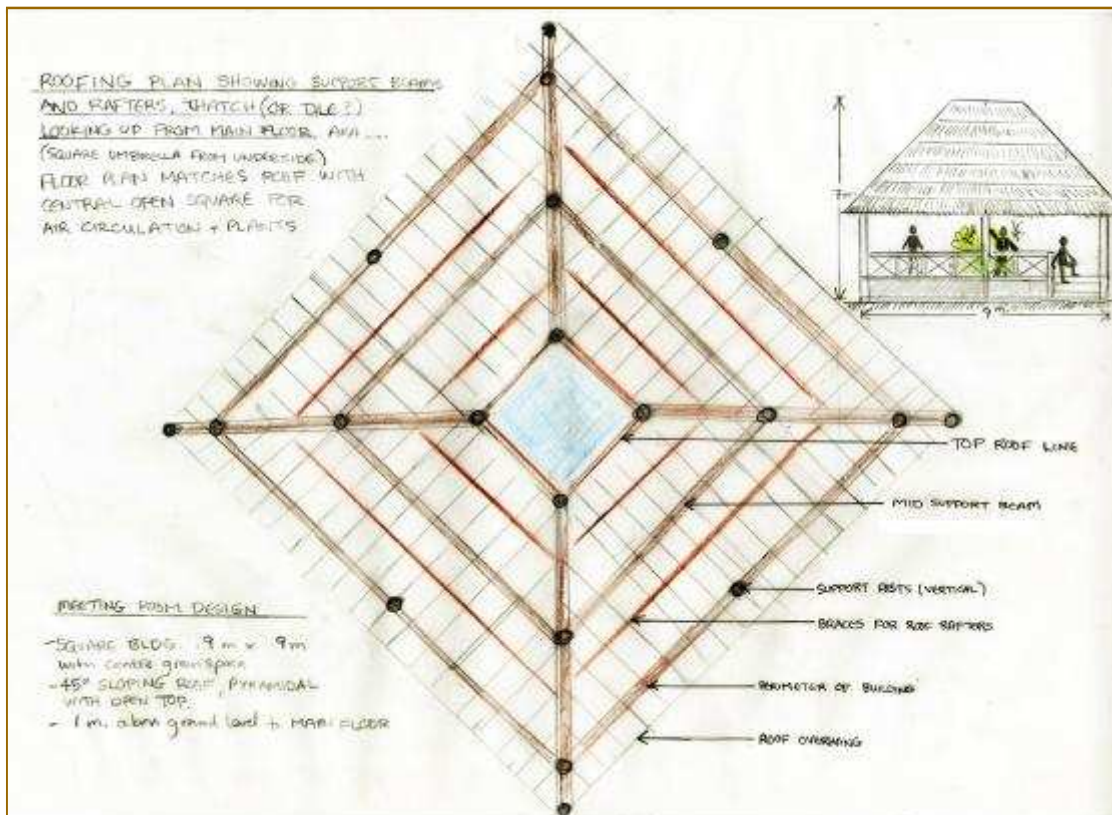 ROOFING PLAN SHOWING SUPPORT BEAMS
AND RAFTERS, THATCH (OR TILE?)
LOOKING UP FROM MAIN FLOOR, AKA....
(SQUARE UMBRELLA FROM UNDERSIDE)
FLOOR PLAN MATCHES ROOF WITH
CENTRAL OPEN SQUARE FOR
AIR CIRCULATION + PLANTS
9 m.
TOP ROOF LINE
MID SUPPORT BEAM
SUPPORT POSTS (VERTICAL)
BRACES FOR ROOF RAFTERS
PERIMETER OF BUILDING
ROOF OVERHANG
MEETING ROOM DESIGN
- SQUARE BLDG. 9 m x 9 m
with centre
- 45° SLOPING ROOF, PYRAMIDAL
WITH OPEN TOP.
- 1 m. above ground level to MAIN FLOOR